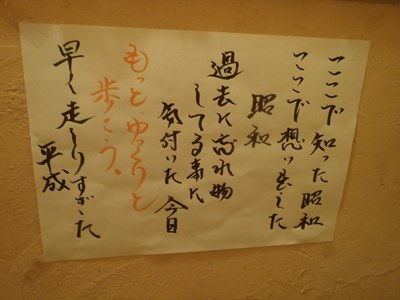 ここで知った昭和
ここで想い出した
昭和
過去に忘れ物
してる事に
気付いた今日
もっとゆっくりと
歩こう。
早く走りすぎた
平成